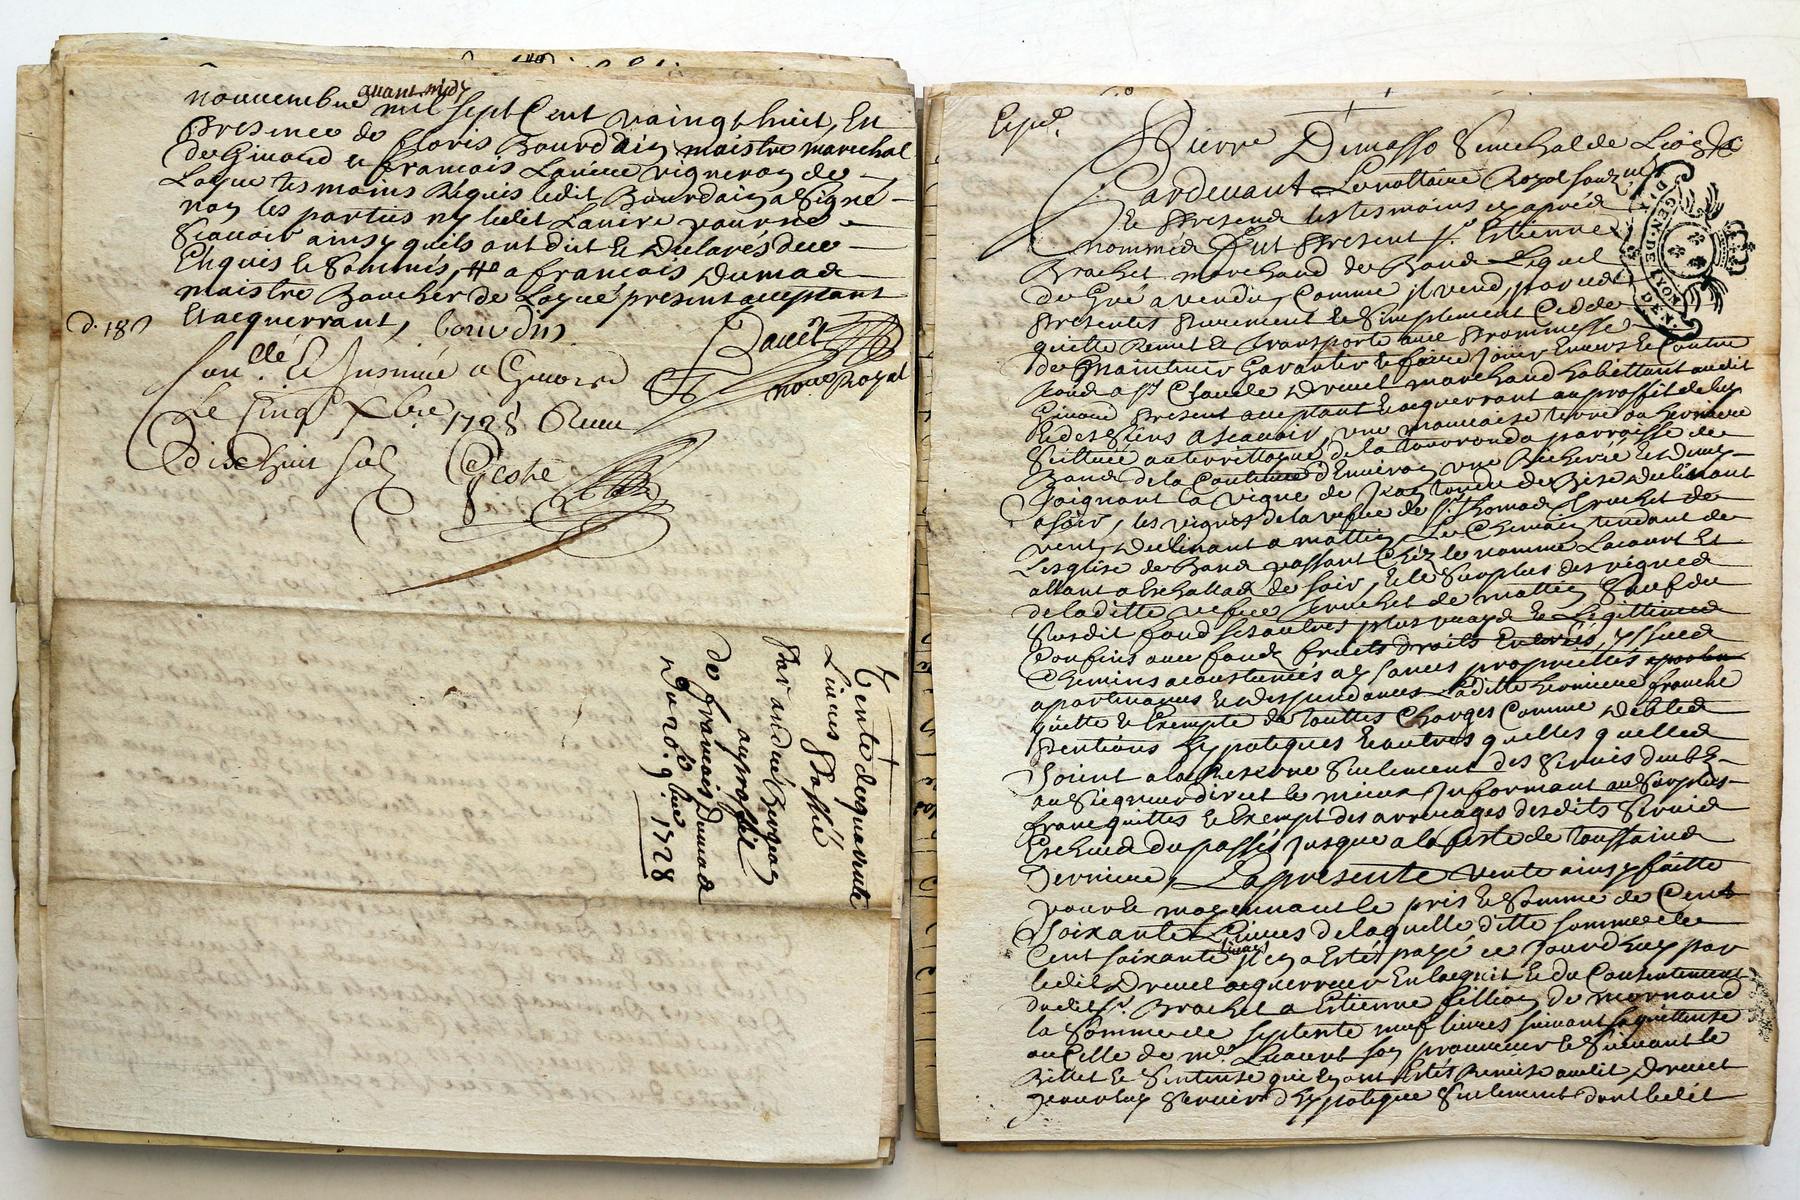 nouvembre avant midy mil sept Cent vaingt huit, En
presence de floris Bourdain maistre marechal
de Givord et francois Laniere vigneron de
Loyre tesmoins Requis ledit Bourdain a signé
non les parties ny ledit Laniere pour ne
scauoir ainsy quils ont dit et Déclarés de ce
Enquis et sommés, a francois Dumad
maistre Boucher de Loyre present acceptant
et acquerrant, bourdin
d. 18
Con.llé Et Insinué a Givord
le Cinq xbre 1728 Receu
Dixhuit sols
not.re Royal
Vente de quarante
Livres Passée
Par andré
au proffit
de françois Dumad
Du 26e 9bre 1728
Exped.
Pierre Dumasse Senechal de Lion
Pardeuant Le nottaire Royal souz.né
et Present les tesmoins cy apred
nommed fut Present S.r Estienne
Brachet marchand de Band Lequel
de Gré a vendu, Comme jl vend, par ced
presentes purement et simplement Cedde
quitte Remet et transporte auec promesse
de maintenir Garantir et faire jouir Enuers et Contre
toud a S.r Claude Dreuet marchand habittant audit
Givord present acceptant et acquerrant au proffit de luy
et des siens a scauoir, une mauuaise terre ou hermiere
scittuée au territtoyre de la tourronde parroisse de
Band de la Contenue d'Enuiron une Bicherée et demy
Joignant la vigne de Jean de Bise declinant
a soir, les vignes de la vefue de S.r thomad Cruchet de
vent, declinant a mattin Le Chemain tendant de
l'esglise de Band passant Chéz le nommé Lacourt Et
allant a Eschallad de soir, et le surplus des vigned
de laditte vefue Cruchet de mattin sauf du
susdit fond ses autres plus vrayd et legittimed
Confins auec fond fruits droits Entrées, yssued
Chemins acoustumés aysances proprietés
apartenances et despendances Laditte hermiere franche
quitte et Exempte de touttes Charges Comme debted
pentions hypoteques et autres quelles quelled
soient a la Reserue seulement des seruis deubz
au seigneur direct le mieux Informant au surplus
franc quittes et Exempt des arrerages desdits seruis
Escheud du passé jusque a la feste de toussaind
derniere, La presente vente ainsy faitte
pour et moyennant le pris et somme de Cent
soixante Livres de laquelle ditte somme de
Cent soixante livres jl en a Esté payé ce jourd'huy par
ledit Dreuet acquerreur En lacquit et du Consentement
dudit S.r Brachet a Estienne fillion de mornand
la somme de septente neuf liures suiuant la quittense
au Celle de m.e Luaurt son procureur et suiuant le
Billet et sentense qui luy ont Estés Remise audit Dreuet
pour luy seruir d'hypoteque seulement dont ledit
D. GEN. DE LYON